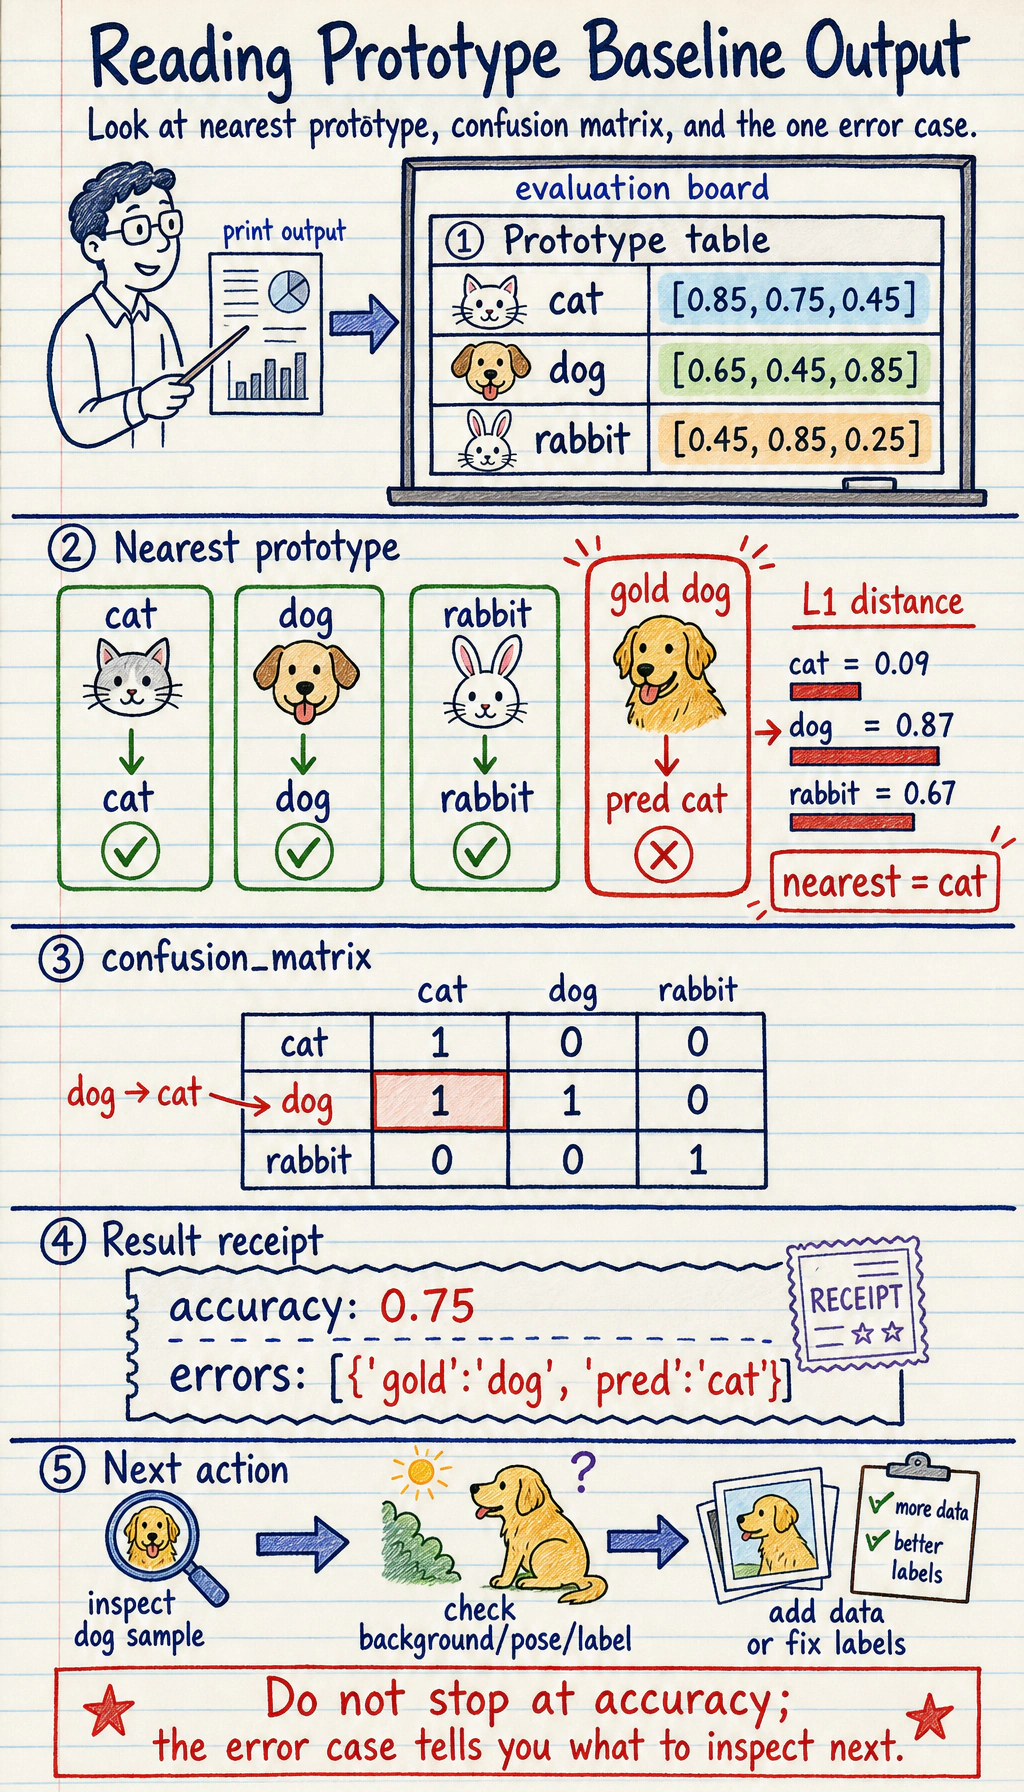 Reading Prototype Baseline Output
Look at nearest prototype, confusion matrix, and the one error case.
print output
evaluation board
① Prototype table
cat [0.85, 0.75, 0.45]
dog [0.65, 0.45, 0.85]
rabbit [0.45, 0.85, 0.25]
② Nearest prototype
cat
cat
dog
dog
rabbit
rabbit
gold dog
pred cat
L1 distance
cat = 0.09
dog = 0.87
rabbit = 0.67
nearest = cat
③ confusion_matrix
cat dog rabbit
cat 1 0 0
dog → cat
dog 1 1 0
rabbit 0 0 1
④ Result receipt
accuracy: 0.75
errors: [{'gold':'dog', 'pred':'cat'}]
RECEIPT
⑤ Next action
?
inspect
dog sample
check
background/pose/label
more data
better
labels
add data
or fix labels
Do not stop at accuracy;
the error case tells you what to inspect next.